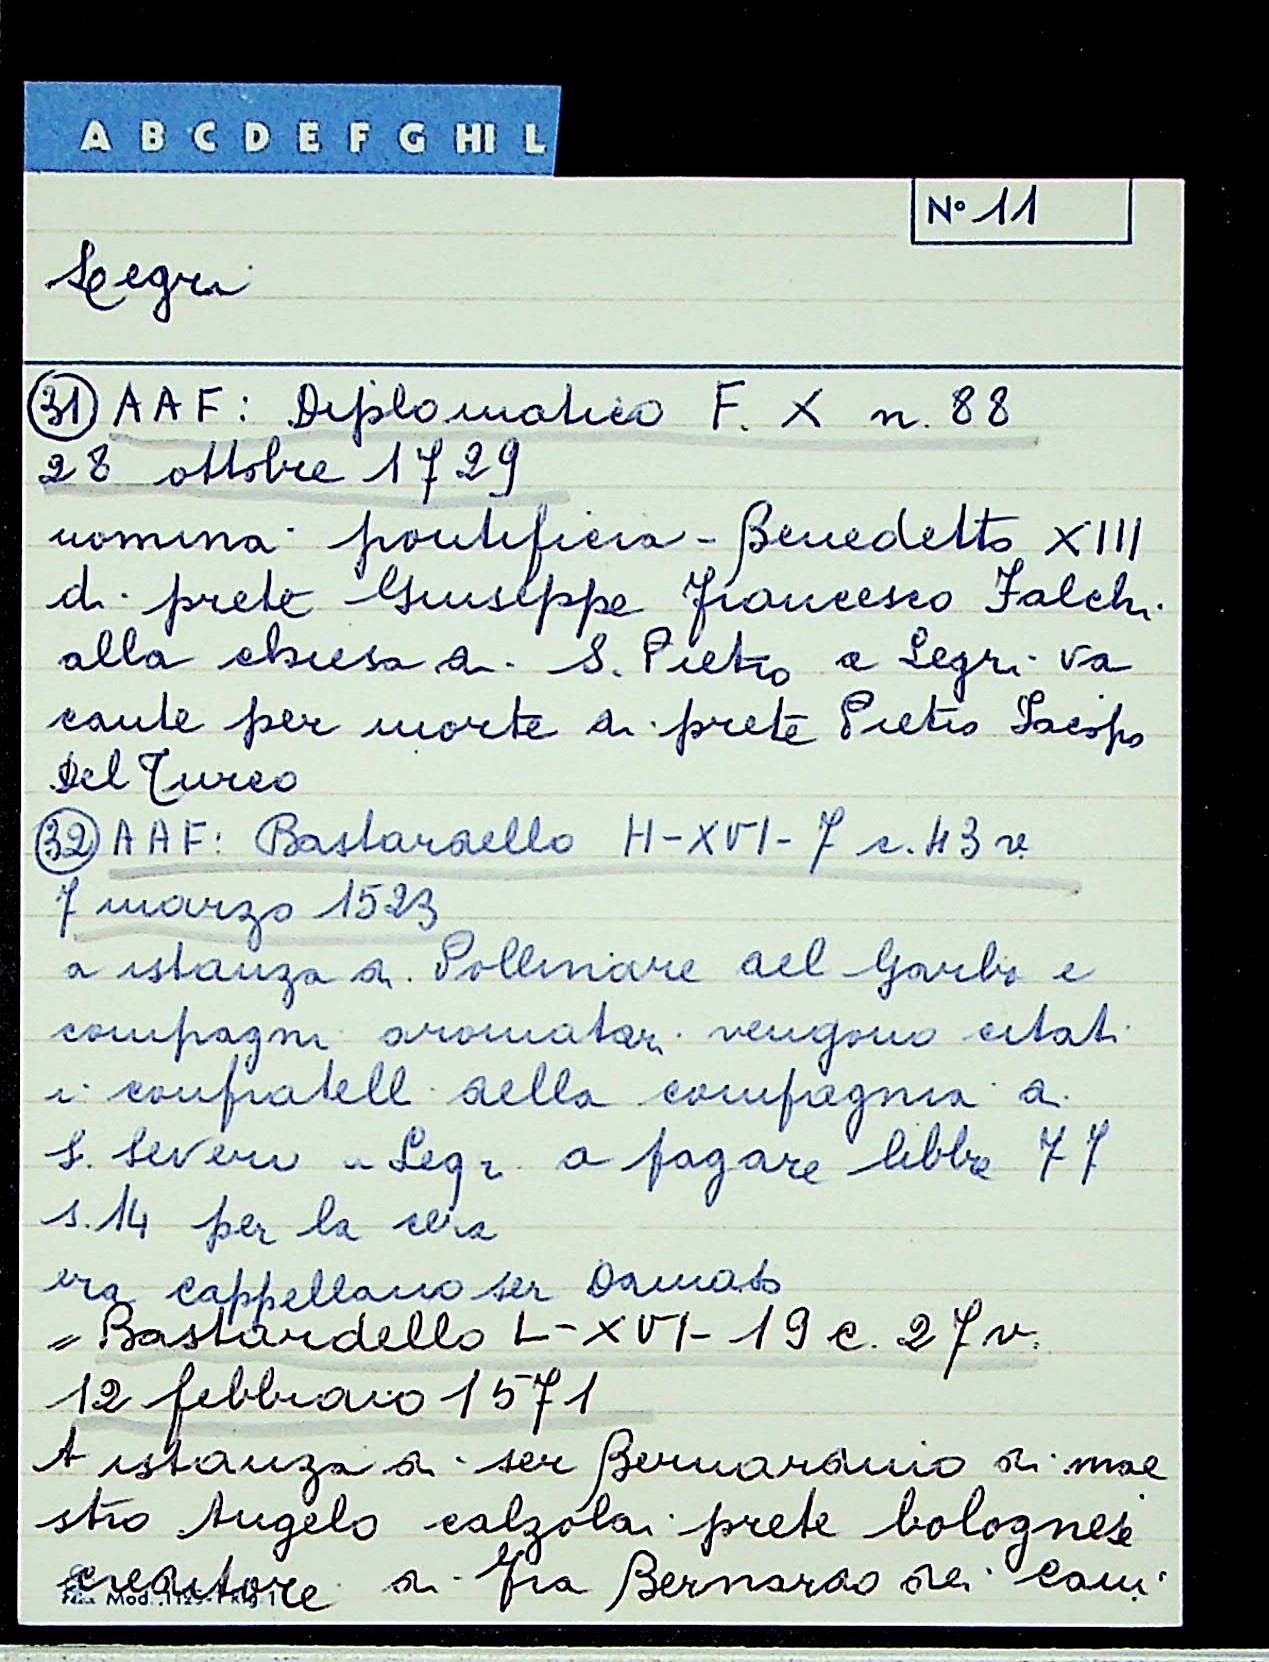 A B C D E F G HI L
N° 11
Legri
31 AAF: Diplomatico F. X n. 88
28 ottobre 1729
nomina pontificia - Benedetto XIII
di prete Giuseppe Francesco Falchi
alla chiesa di S. Pietro a Legri va
cante per morte di prete Pietro Jacopo
Del Turco
32 AAF: Bastardello H-XVI-7 c. 43 v.
7 marzo 1523
a istanza di Pollinare del Garbo e
compagni aromatari vengono citati
i confratelli della compagnia di
S. Severo a Legri a pagare libbre 77
s. 14 per la cera
era cappellano ser Damaso
" Bastardello L-XVI-19 c. 27 v.
12 febbraio 1571
A istanza di ser Bernardino di mae
stro Angelo calzolai prete bolognese
creditore di fra Bernardo dei Cam